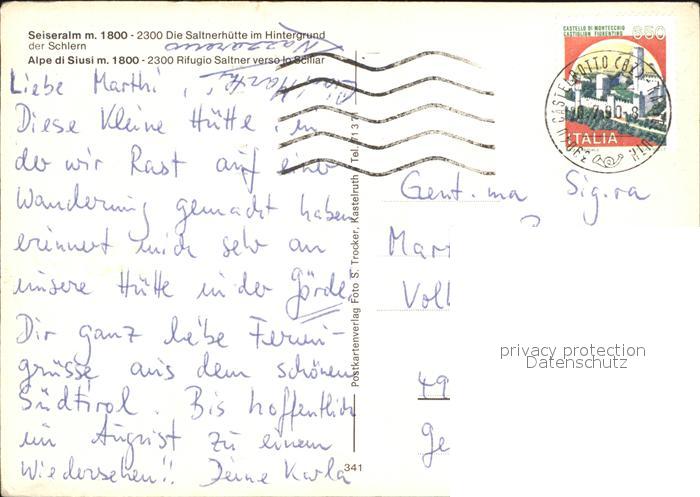 Seiseralm m. 1800 - 2300 Die Saltnerhütte im Hintergrund
der Schlern
Alpe di Siusi m. 1800 - 2300 Rifugio Saltner verso lo Sciliar
Liebe Marthi,
Diese kleine Hütte, in
der wir Rast auf einer
Wanderung gemacht haben
erinnert mich sehr an
unsere Hütte in der Görde.
Dir ganz liebe Ferien-
grüsse aus dem schönen
Südtirol. Bis hoffentlich
im August zu einem
Wiedersehen!! Deine Karla
341
Postkartenverlag Foto S. Trocker, Kastelruth / Tel. 7137
CASTELLO DI MONTECCHIO
CASTIGLION FIORENTINO
650
ITALIA
Gent.ma Sig.ra
Mart
Voll
49
Ge
privacy protection
Datenschutz